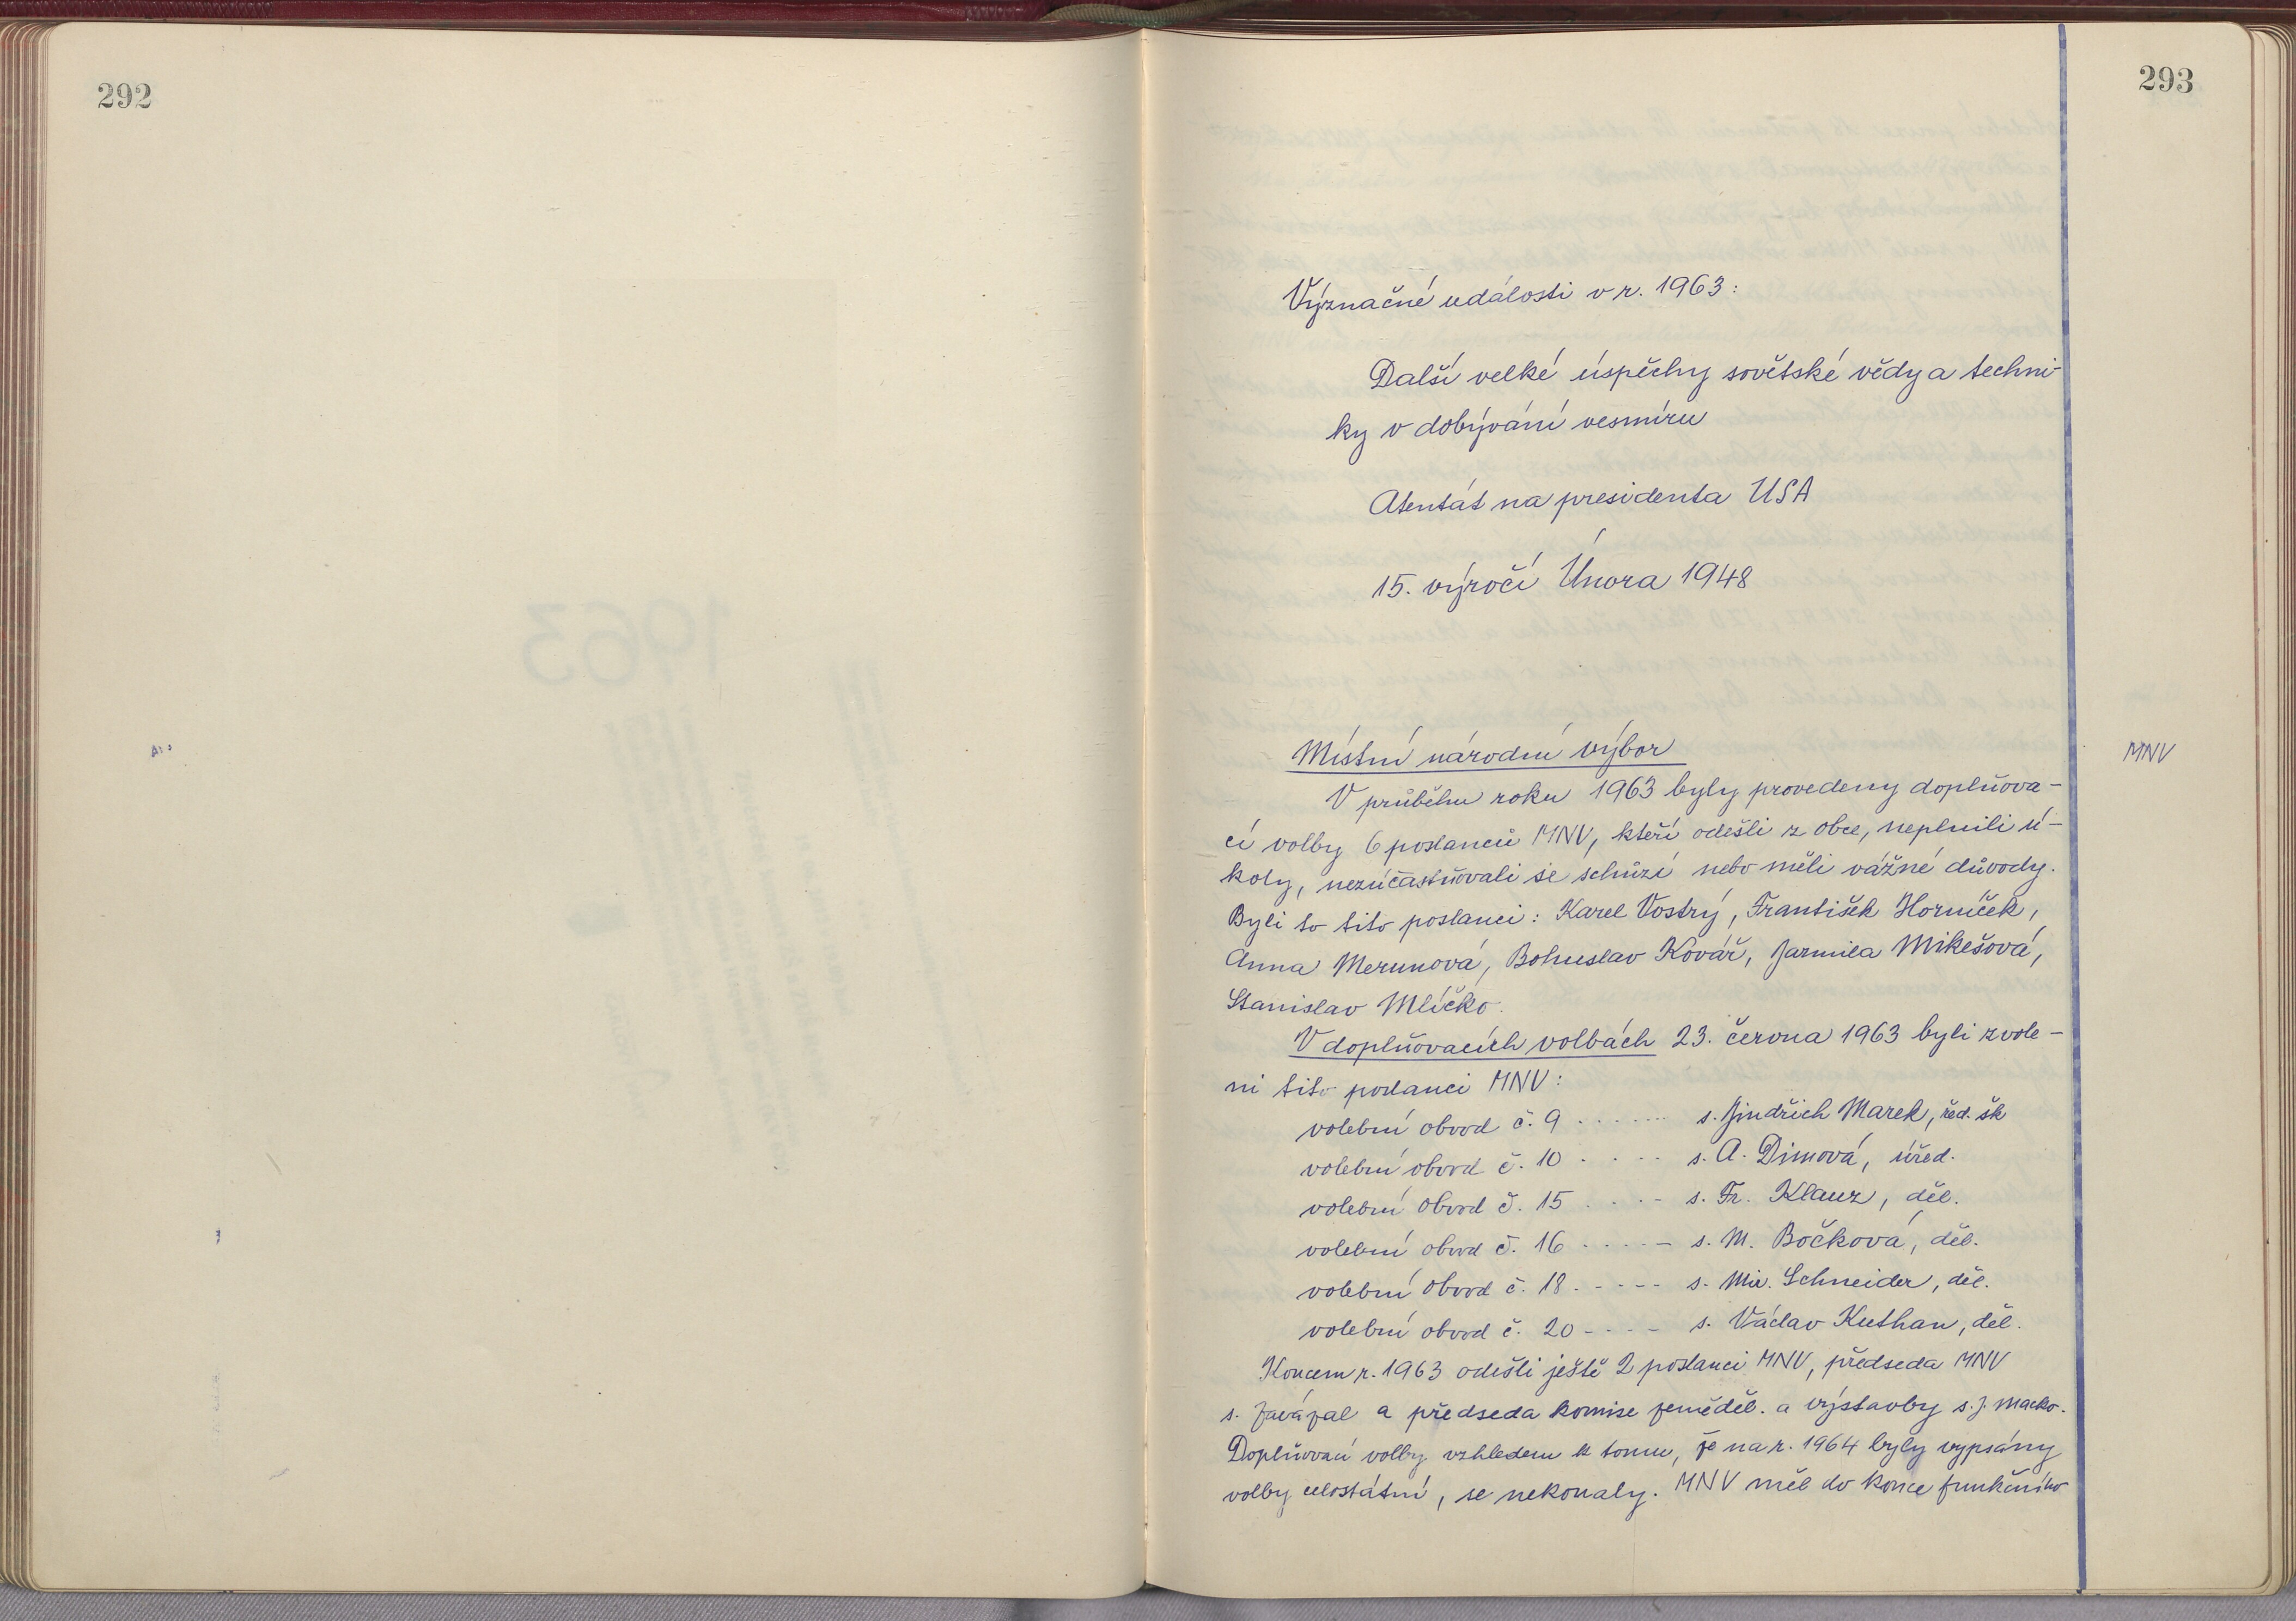 292
293
Význačné události v r. 1963:
Další velké úspěchy sovětské vědy a techni-
ky v dobývání vesmíru
Atentát na presidenta USA
15. výročí Února 1948
Místní národní výbor
MNV
V průběhu roku 1963 byly provedeny doplňova-
cí volby 6 poslanců MNV, kteří odešli z obce, neplnili ú-
koly, nezúčastňovali se schůzí nebo měli vážné důvody.
Byli to tito poslanci: Karel Vostrý, František Horníček,
Anna Merunová, Bohuslav Kovář, Jarmila Mikešová,
Stanislav Mlíčko.
V doplňovacích volbách 23. června 1963 byli zvole-
ni tito poslanci MNV:
volební obvod č. 9 ...... s. Jindřich Marek, řed. šk
volební obvod č. 10 .... s. A. Dimová, úřed.
volební obvod č. 15 .... s. Fr. Klauz, děl.
volební obvod č. 16 ..... s. M. Bočková, děl.
volební obvod č. 18 ..... s. Mir. Schneider, děl.
volební obvod č. 20 .... s. Václav Kuthan, děl.
Koncem r. 1963 odešli ještě 2 poslanci MNV, předseda MNV
s. Zavázal a předseda komise zeměděl. a výstavby s. J. Macko.
Doplňovací volby vzhledem k tomu, že na r. 1964 byly vypsány
volby celostátní, se nekonaly. MNV měl do konce funkčního